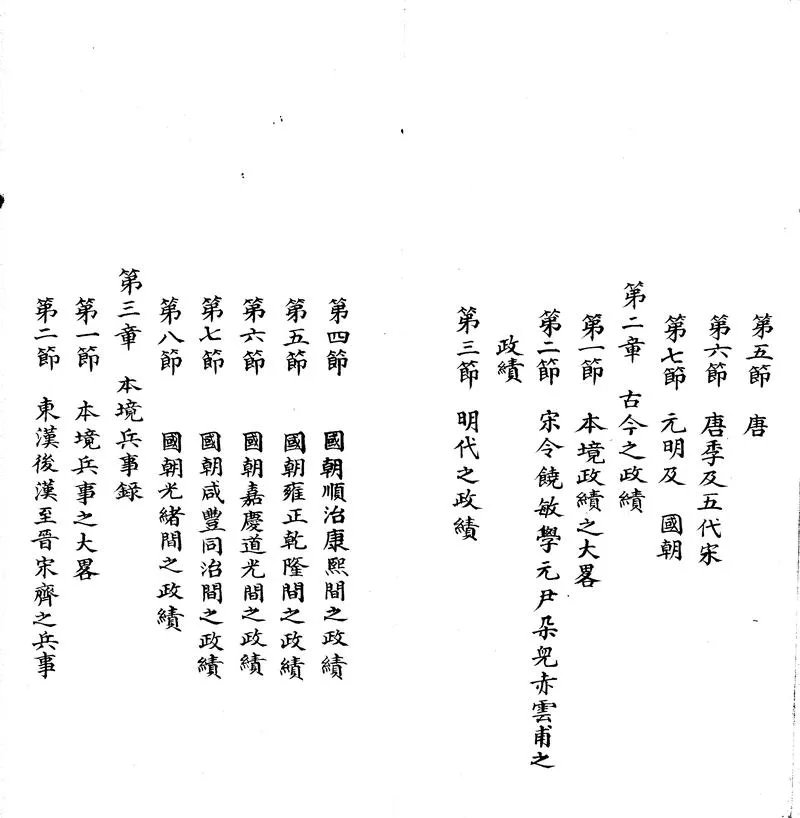 第五節　唐
第六節　唐季及五代宋
第七節　元明及　國朝
第二章　古今之政績
第一節　本境政績之大畧
第二節　宋令饒敏學元尹朶兒赤雲甫之
政績
第三節　明代之政績
第四節　國朝順治康熙間之政績
第五節　國朝雍正乾隆間之政績
第六節　國朝嘉慶道光間之政績
第七節　國朝咸豐同治間之政績
第八節　國朝光緒間之政績
第三章　本境兵事録
第一節　本境兵事之大畧
第二節　東漢後漢至晉宋齊之兵事